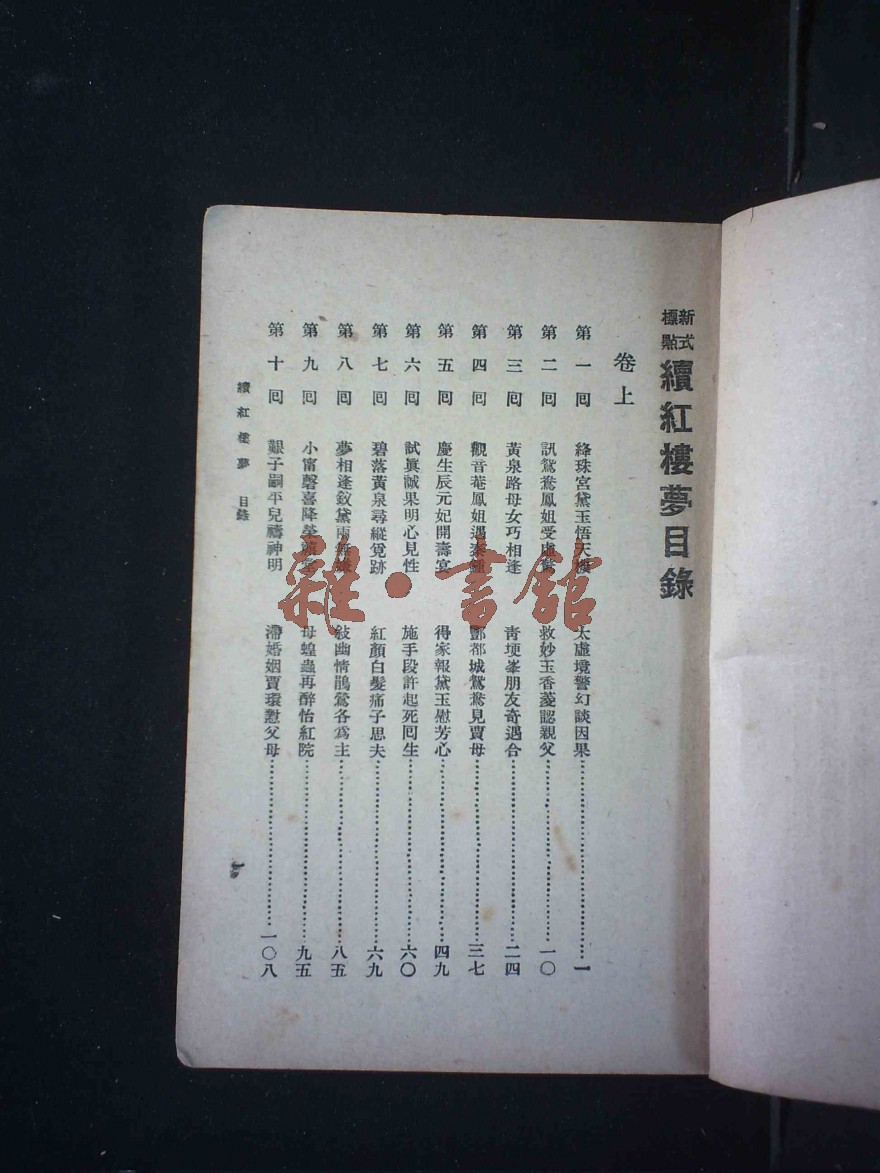 新式標點 續紅樓夢目錄
卷上
第一回 絳珠宮黛玉悟天機 太虛境警幻談因果……一
第二回 訊鴛鴦鳳姐受虛驚 救妙玉香菱認親父……一〇
第三回 黃泉路母女巧相逢 靑埂峯朋友奇遇合……二四
第四回 觀音菴鳳姐遇秦鍾 酆都城鴛鴦見賈母……三七
第五回 慶生辰元妃開壽宴 得家報黛玉慰芳心……四九
第六回 試眞誠果明心見性 施手段許起死回生……六〇
第七回 碧落黃泉尋縱覓跡 紅顏白髮痛子思夫……六九
第八回 夢相逢釵黛兩無嫌 敍幽情鵑鶯各爲主……八五
第九回 小甯馨喜降榮禧堂 母蝗蟲再醉怡紅院……九五
第十回 艱子嗣平兒禱神明 滯婚姻賈環懟父母……一〇八
續紅樓夢 目錄
一
雜·書館